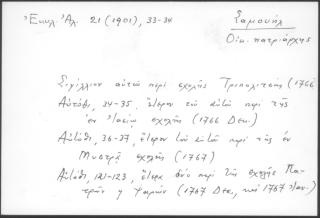 Ἐκκλ. Ἀλ. 21 (1901), 33-34
Σαμουήλ
Οἰκ. πατριάρχης
Σιγίλλιον αὐτοῦ περὶ σχολῆς Τριπολιτσᾶς (1766
Αὐτόθι, 34-35, ἕτερον τοῦ αὐτοῦ περὶ τῆς
ἐν Ἰασίῳ σχολῆς (1766 Δεκ.)
Αὐτόθι, 36-37, ἕτερον τοῦ αὐτοῦ περὶ τῆς ἐν
Μυστρᾷ σχολῆς (1767)
Αὐτόθι, 121-123, ἕτερα δύο περὶ τῆς σχολῆς Πα-
τρῶν ἢ Ψαρῶν (1767 Δεκ., καὶ 1767 Ἰαν.)